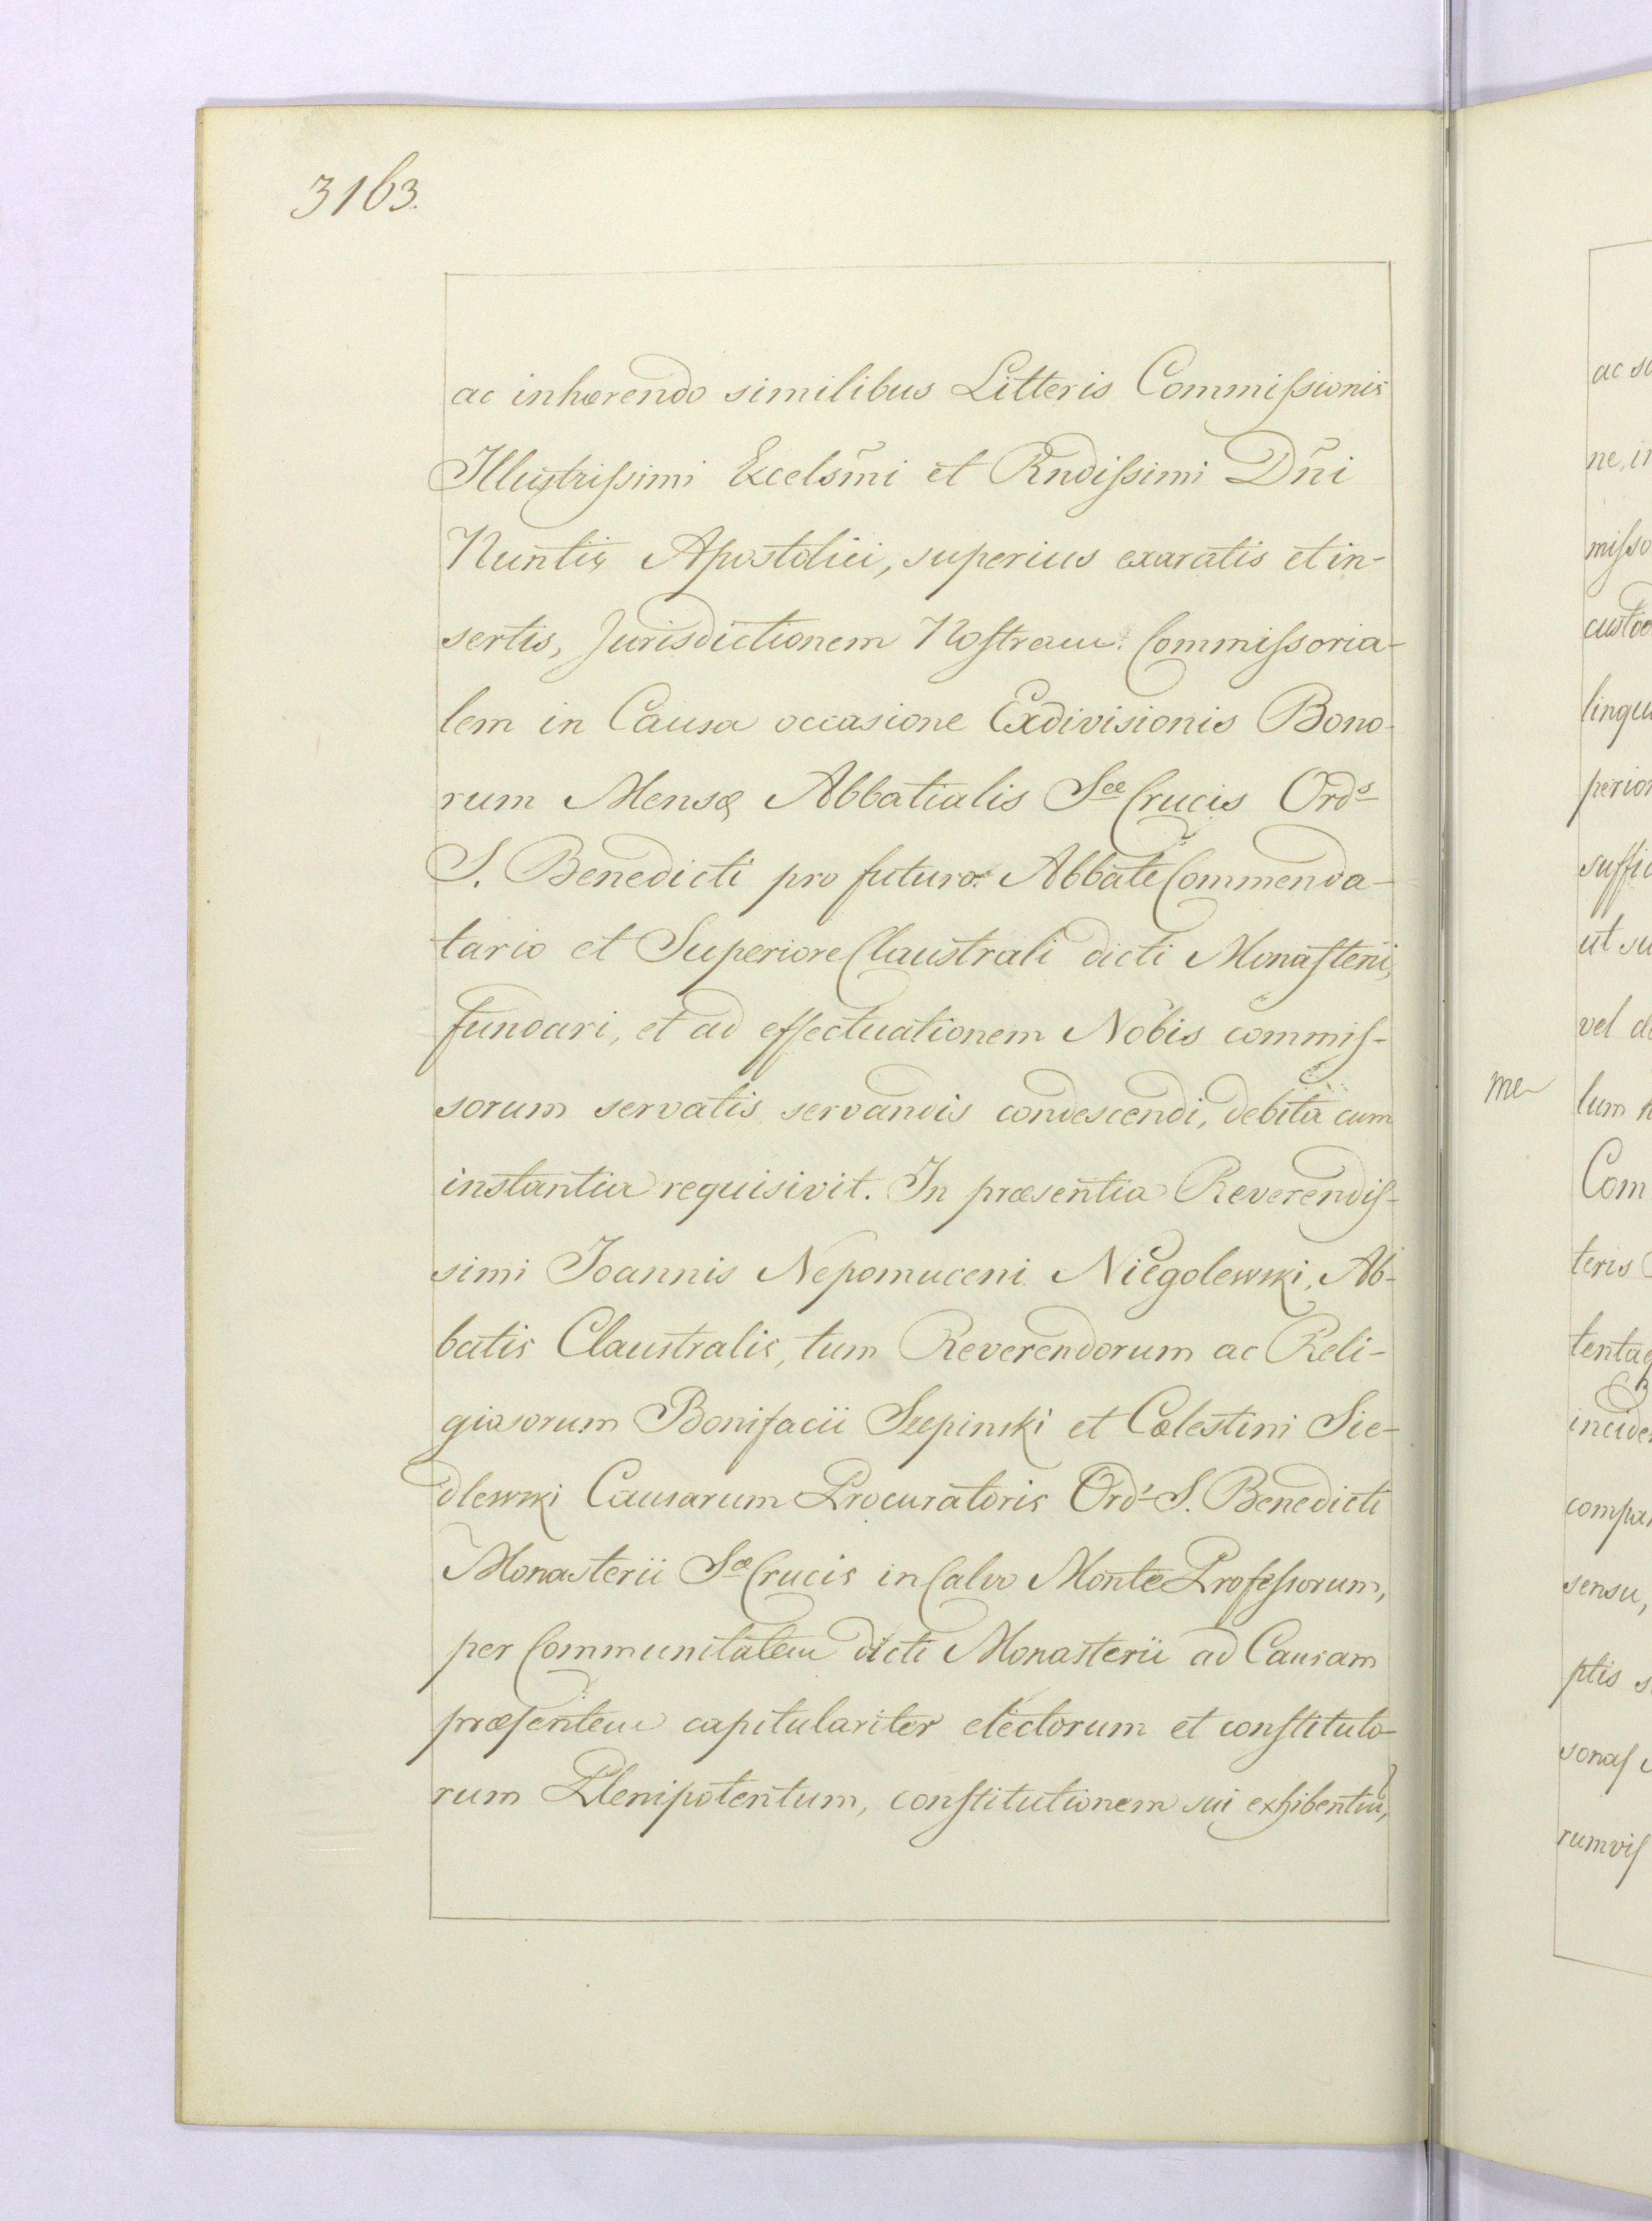 3163.
ac inhærendo similibus Litteris Commissionis
Illustrissimi Excelsm̃i et Rndissimi Dñi
Nuntij Apostolici, superius exaratis et in-
sertis, Jurisdictionem Nostram Commissoria-
lem in Causa occasione Exdivisionis Bono-
rum Mensæ Abbatialis Scæ Crucis Ords
S. Benedicti pro futuro Abbate Commenda-
tario et Superiore Claustrali dicti Monasterii,
fundari, et ad effectuationem Nobis commis-
sorum servatis servandis condescendi, debita cum
instantia requisivit. In præsentia Reverendis-
simi Joannis Nepomuceni Niegolewski, Ab-
batis Claustralis, tum Reverendorum ac Reli-
giosorum Bonifacii Szepinski et Cœlestini Sie-
dlewski Causarum Procuratoris Ords S. Benedicti
Monasterii Sæ Crucis in Calvo Monte Professorum,
per Communitatem dicti Monasterii ad Causam
præsentem capitulariter electorum et constituto-
rum Plenipotentum, constitutionem sui exhibentiũ,
ne, in
custo
ut su
vel d
me
lum
Com
teris
compa
sensu,
ptis s